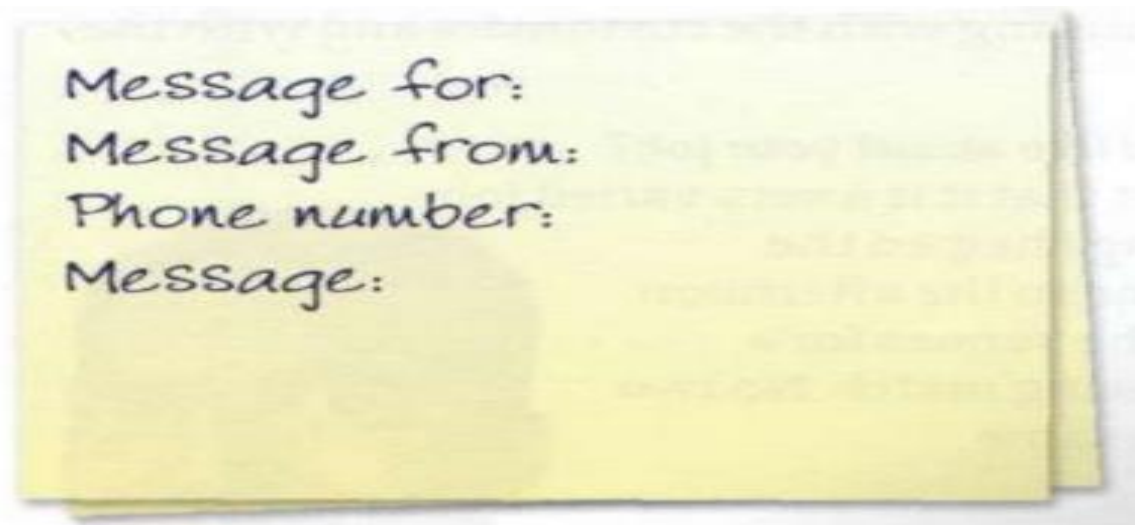 Message for:
Message from:
Phone number:
Message: